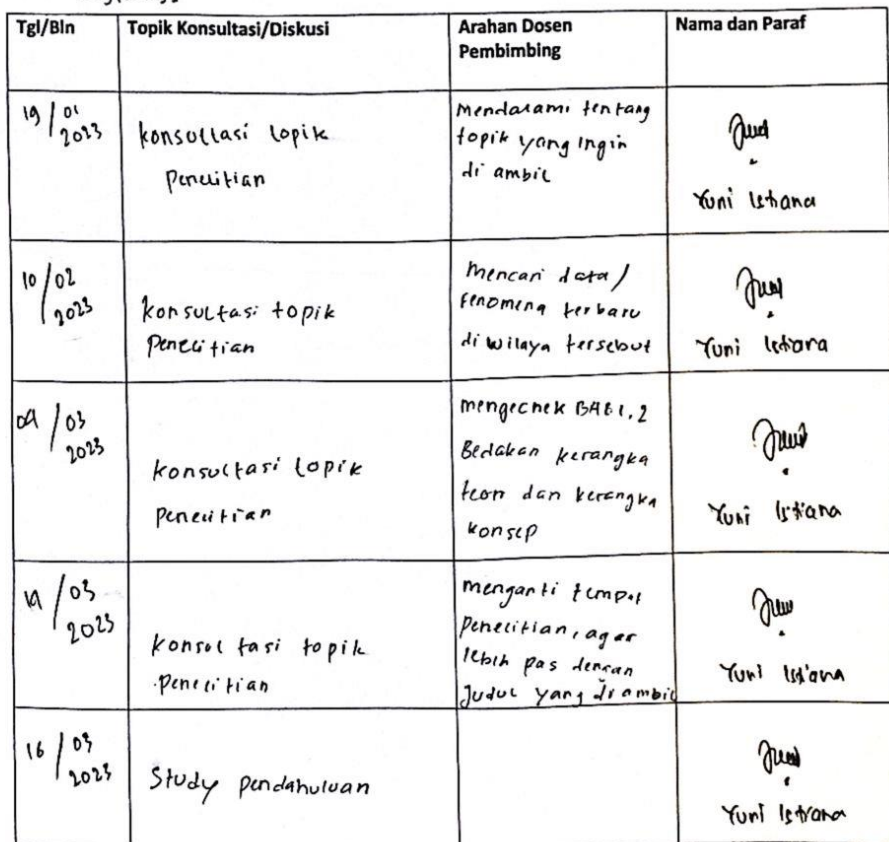 Tgl/Bln
Topik Konsultasi/Diskusi
Arahan Dosen
Pembimbing
Nama dan Paraf
19/01
2023
konsultasi topik
Penelitian
Mendalami tentang
topik yang ingin
di ambil
Yuni Istiana
10/02
2023
konsultasi topik
Penelitian
Mencari data/
fenomena terbaru
di wilaya tersebut
Yuni Istiana
09/03
2023
Konsultasi topik
Penelitian
mengechek BAB 1,2
Bedakan kerangka
teori dan kerangka
konsep
Yuni Istiana
/03
2023
Konsultasi topik
Penelitian
menganti tempat
Penelitian, agar
lebih pas dengan
Judul yang di ambil
Yuni Istiana
16/03
2023
Study pendahuluan
Yuni Istiana